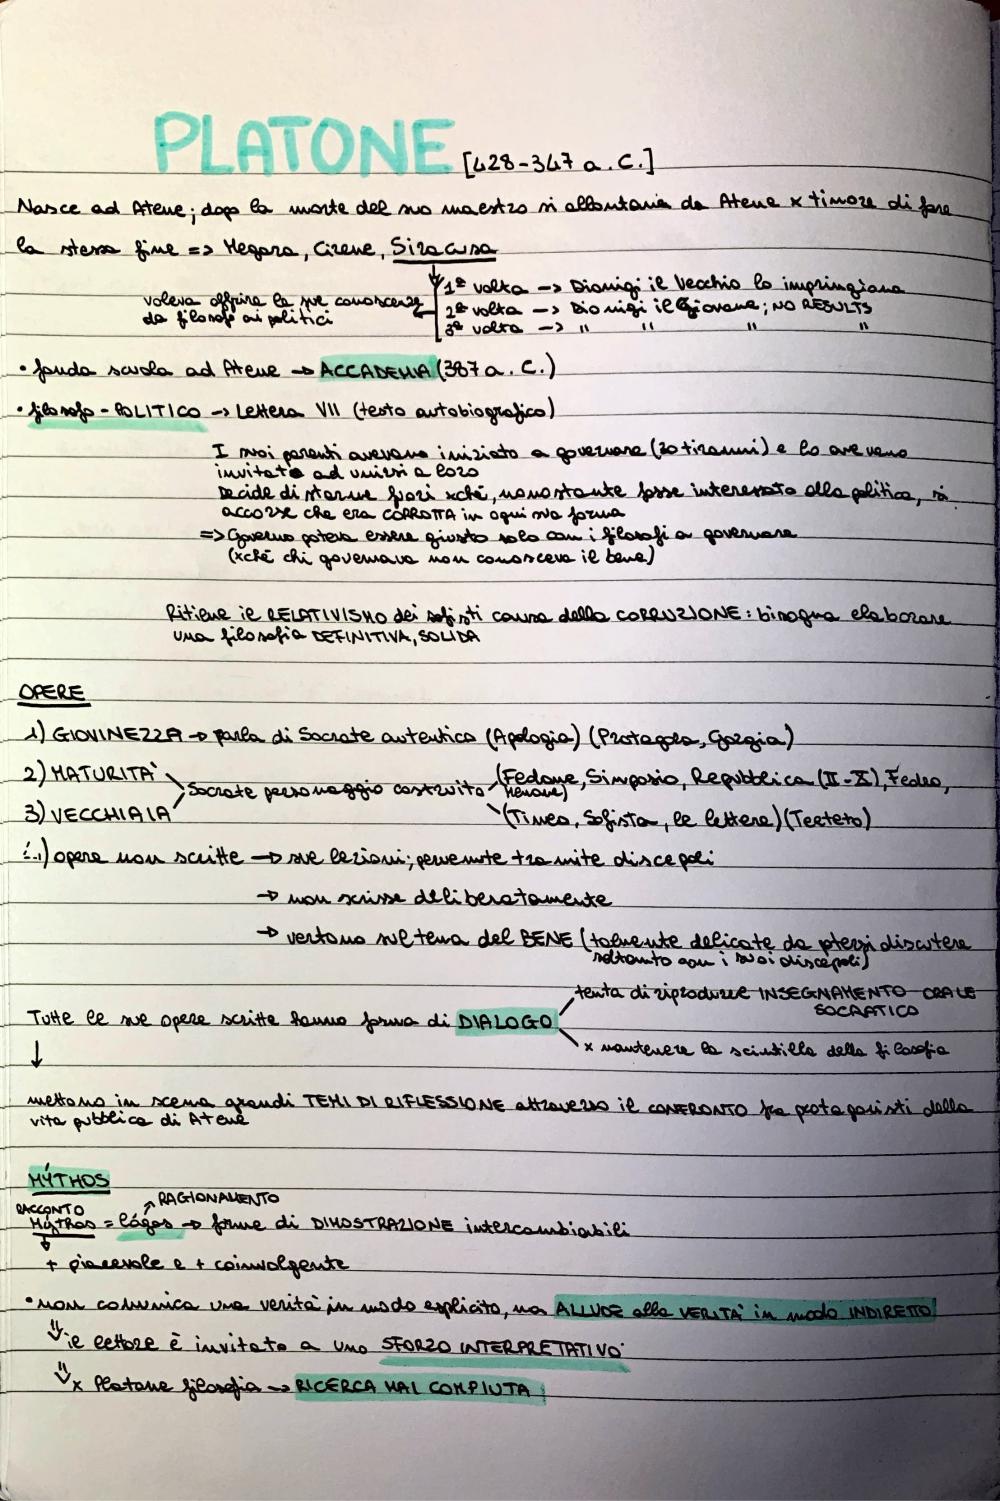 PLATONE [428-347 a.C.]
Nasce ad Atene; dopo la morte del suo maestro si allontana da Atene x timore di fare
la stessa fine => Megara, Cirene, Siracusa
1ª volta -> Dionigi il Vecchio lo imprigiona
voleva offrire le sue conoscenze
da filosofo ai politici
2ª volta -> Dionigi il Giovane; NO RESULTS
3ª volta -> " " " "
• fonda scuola ad Atene -> ACCADEMIA (387 a.C.)
• filosofo - POLITICO -> Lettera VII (testo autobiografico)
I suoi parenti avevano iniziato a governare (30 tiranni) e lo avevano
invitato ad unirsi a loro
Decide di starne fuori xché, nonostante fosse interessato alla politica, si
accorse che era CORROTTA in ogni sua forma
=> Governo poteva essere giusto solo con i filosofi a governare
(xché chi governava non conosceva il bene)
Ritiene il RELATIVISMO dei sofisti causa della CORRUZIONE: bisogna elaborare
una filosofia DEFINITIVA, SOLIDA
OPERE
1) GIOVINEZZA -> parla di Socrate autentico (Apologia) (Protagora, Gorgia)
2) MATURITÀ
Socrate personaggio costruito
(Fedone, Simposio, Repubblica (II-X), Fedro,
Menone)
3) VECCHIAIA
(Timeo, Sofista, le lettere) (Teeteto)
...) opere non scritte -> sue lezioni; pervenute tramite discepoli
-> non scrisse deliberatamente
-> vertono sul tema del BENE (talmente delicate da potersi discutere
soltanto con i suoi discepoli)
tenta di riprodurre INSEGNAMENTO ORALE
SOCRATICO
Tutte le sue opere scritte hanno forma di DIALOGO
x mantenere la scintilla della filosofia
↓
mettono in scena grandi TEMI DI RIFLESSIONE attraverso il CONFRONTO fra protagonisti della
vita pubblica di Atene
MÝTHOS
RACCONTO
RAGIONAMENTO
Mýthos = lógos -> forme di DIMOSTRAZIONE intercambiabili
↓
+ piacevole e + coinvolgente
• non comunica una verità in modo esplicito, ma ALLUDE alla VERITÀ in modo INDIRETTO
⇓ il lettore è invitato a uno SFORZO INTERPRETATIVO
⇓ x Platone filosofia -> RICERCA MAI COMPIUTA